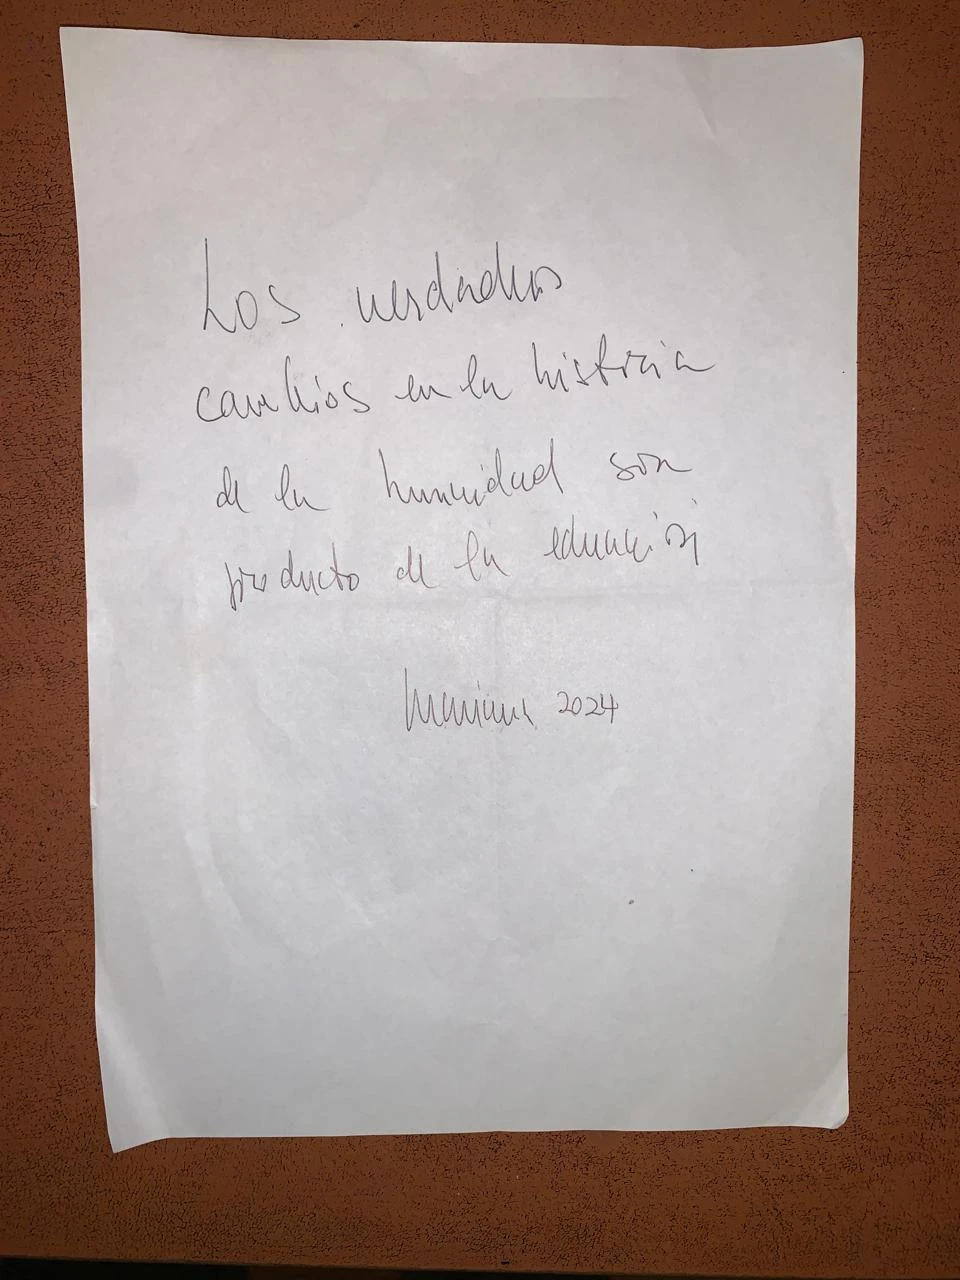 Los verdaderos
cambios en la historia
de la humanidad son
producto de la educación
Mariana 2024